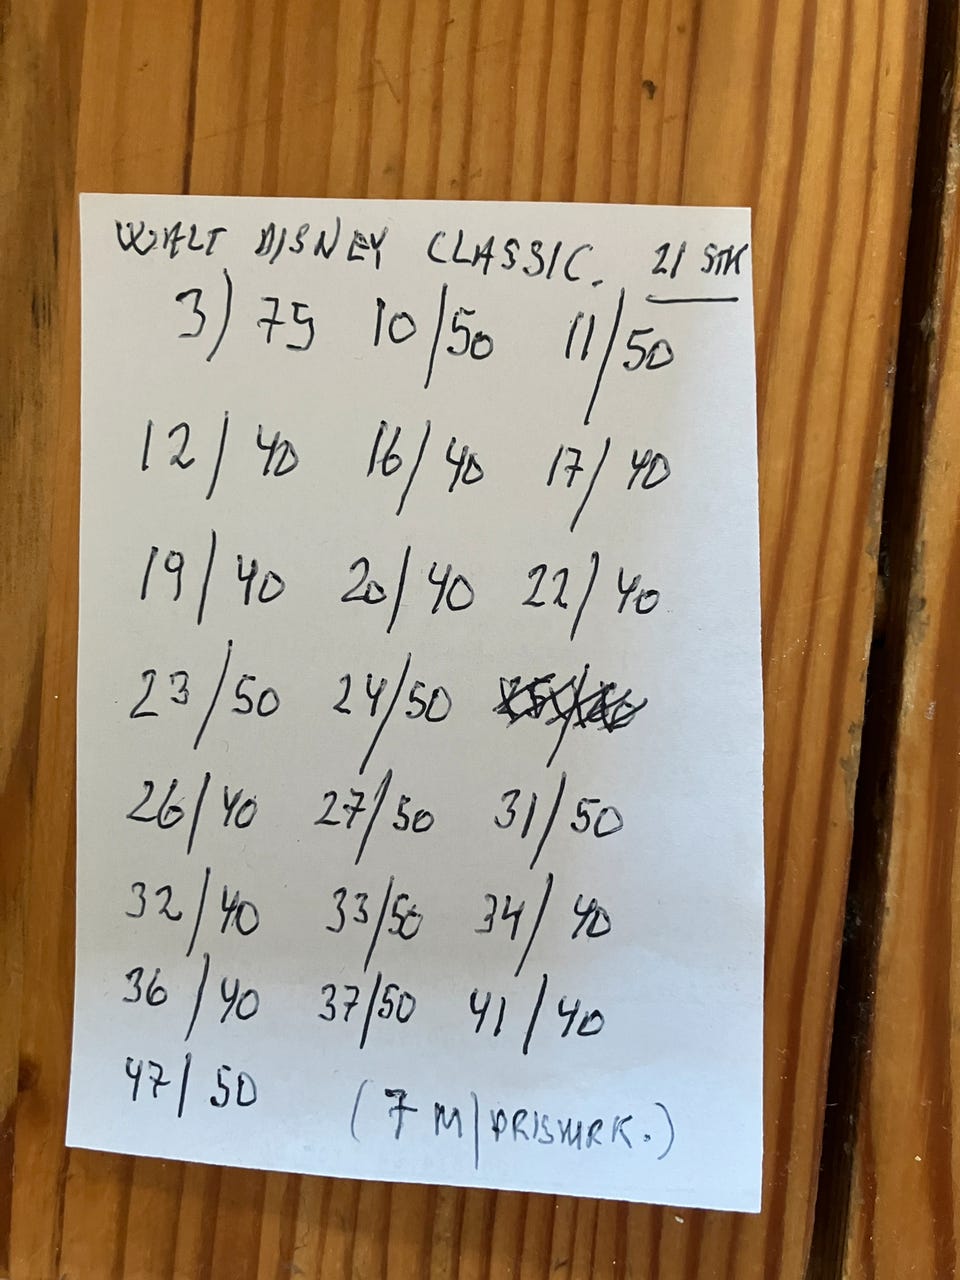 WALT DISNEY CLASSIC. 21 STK
3) 75 10/50 11/50
12/40 16/40 17/40
19/40 20/40 22/40
23/50 24/50
26/40 27/50 31/50
32/40 33/50 34/40
36/40 37/50 41/40
47/50 (7 M/PRISMRK.)